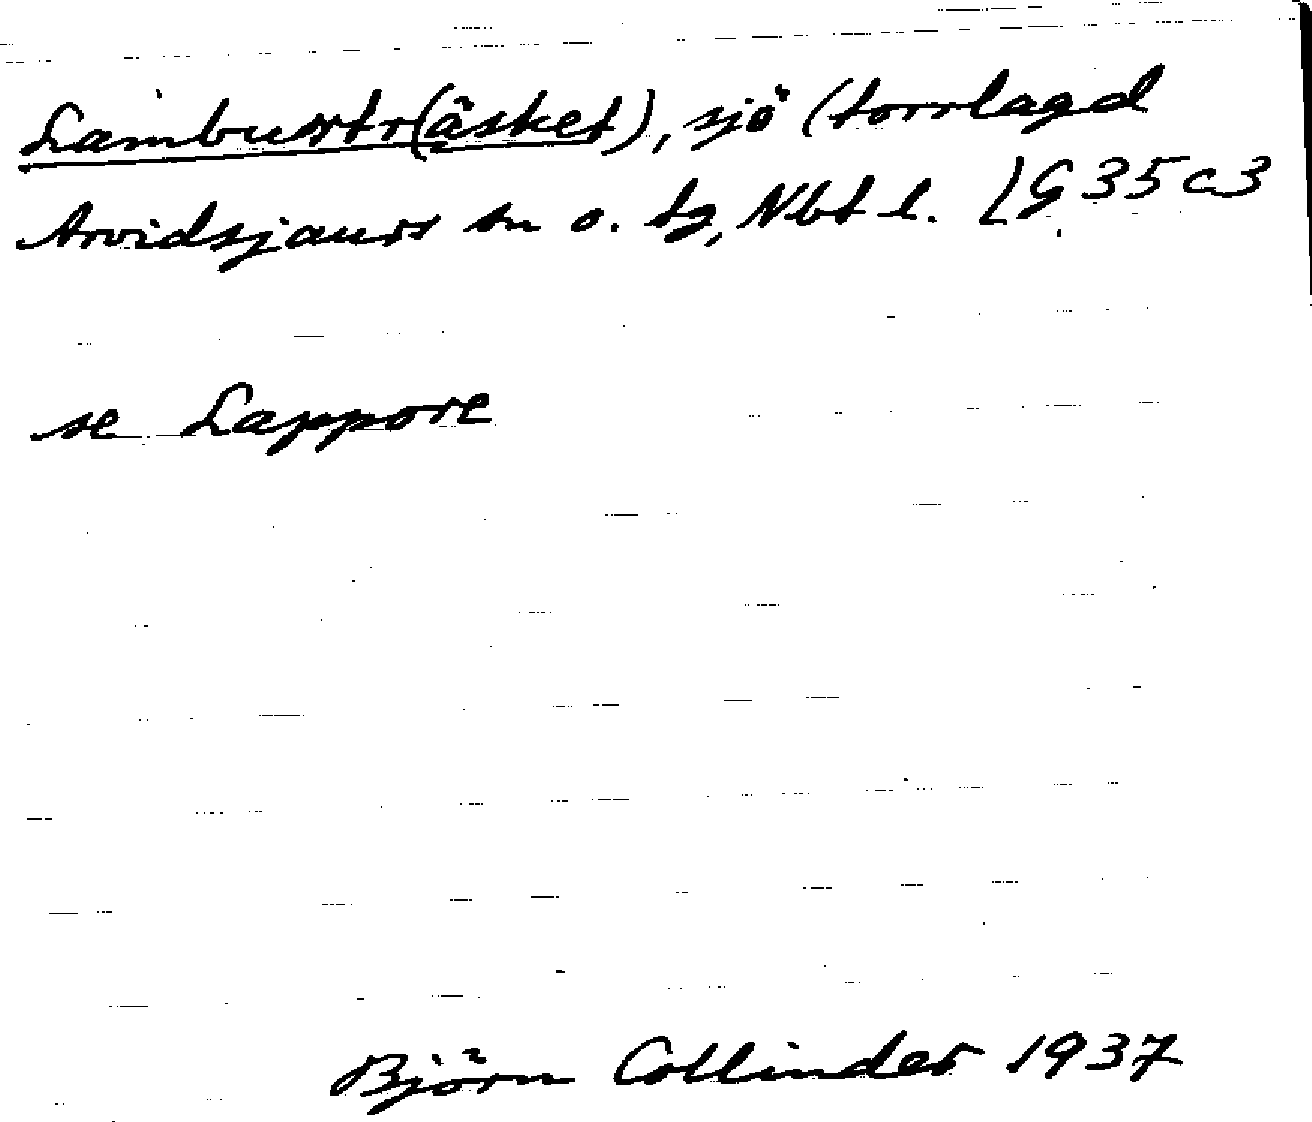 Lambustr(äsket), sjö (torrlagd
Arvidsjaurs sn o. tg, Nbt l. [G 35 c3
se Lappore
Björn Collinder 1937